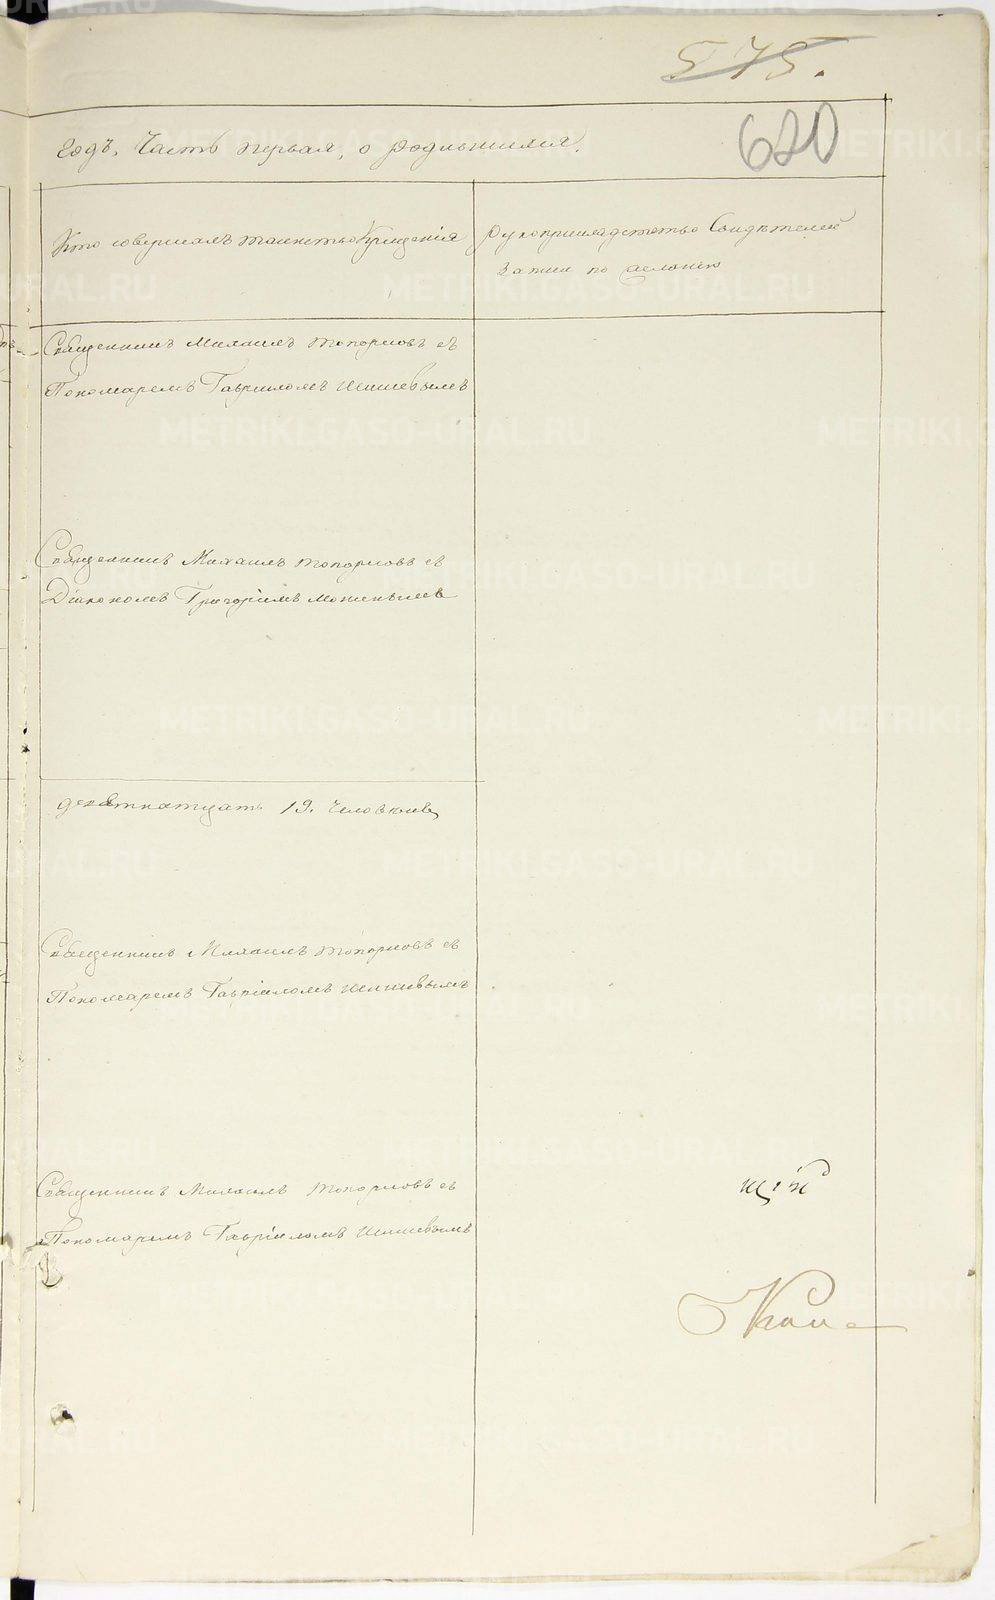 575.
620
годъ, Часть первая, о родившихся.
Кто совершалъ таинство Крещенія
Рукоприкладство Свидѣтелей
записи по желанію
Священникъ Михаилъ Топорковъ съ
Пономаремъ Гавриломъ Шишевымъ
Священникъ Михаилъ Топорковъ съ
Діакономъ Григоріемъ
девятнатцать 19. человѣкъ
Священникъ Михаилъ Топорковъ съ
Пономаремъ Гавріиломъ Шишевымъ
Священникъ Михаилъ Топорковъ съ
Пономаремъ Гавріиломъ Шишевымъ
METRIKI.GASO-URAL.RU